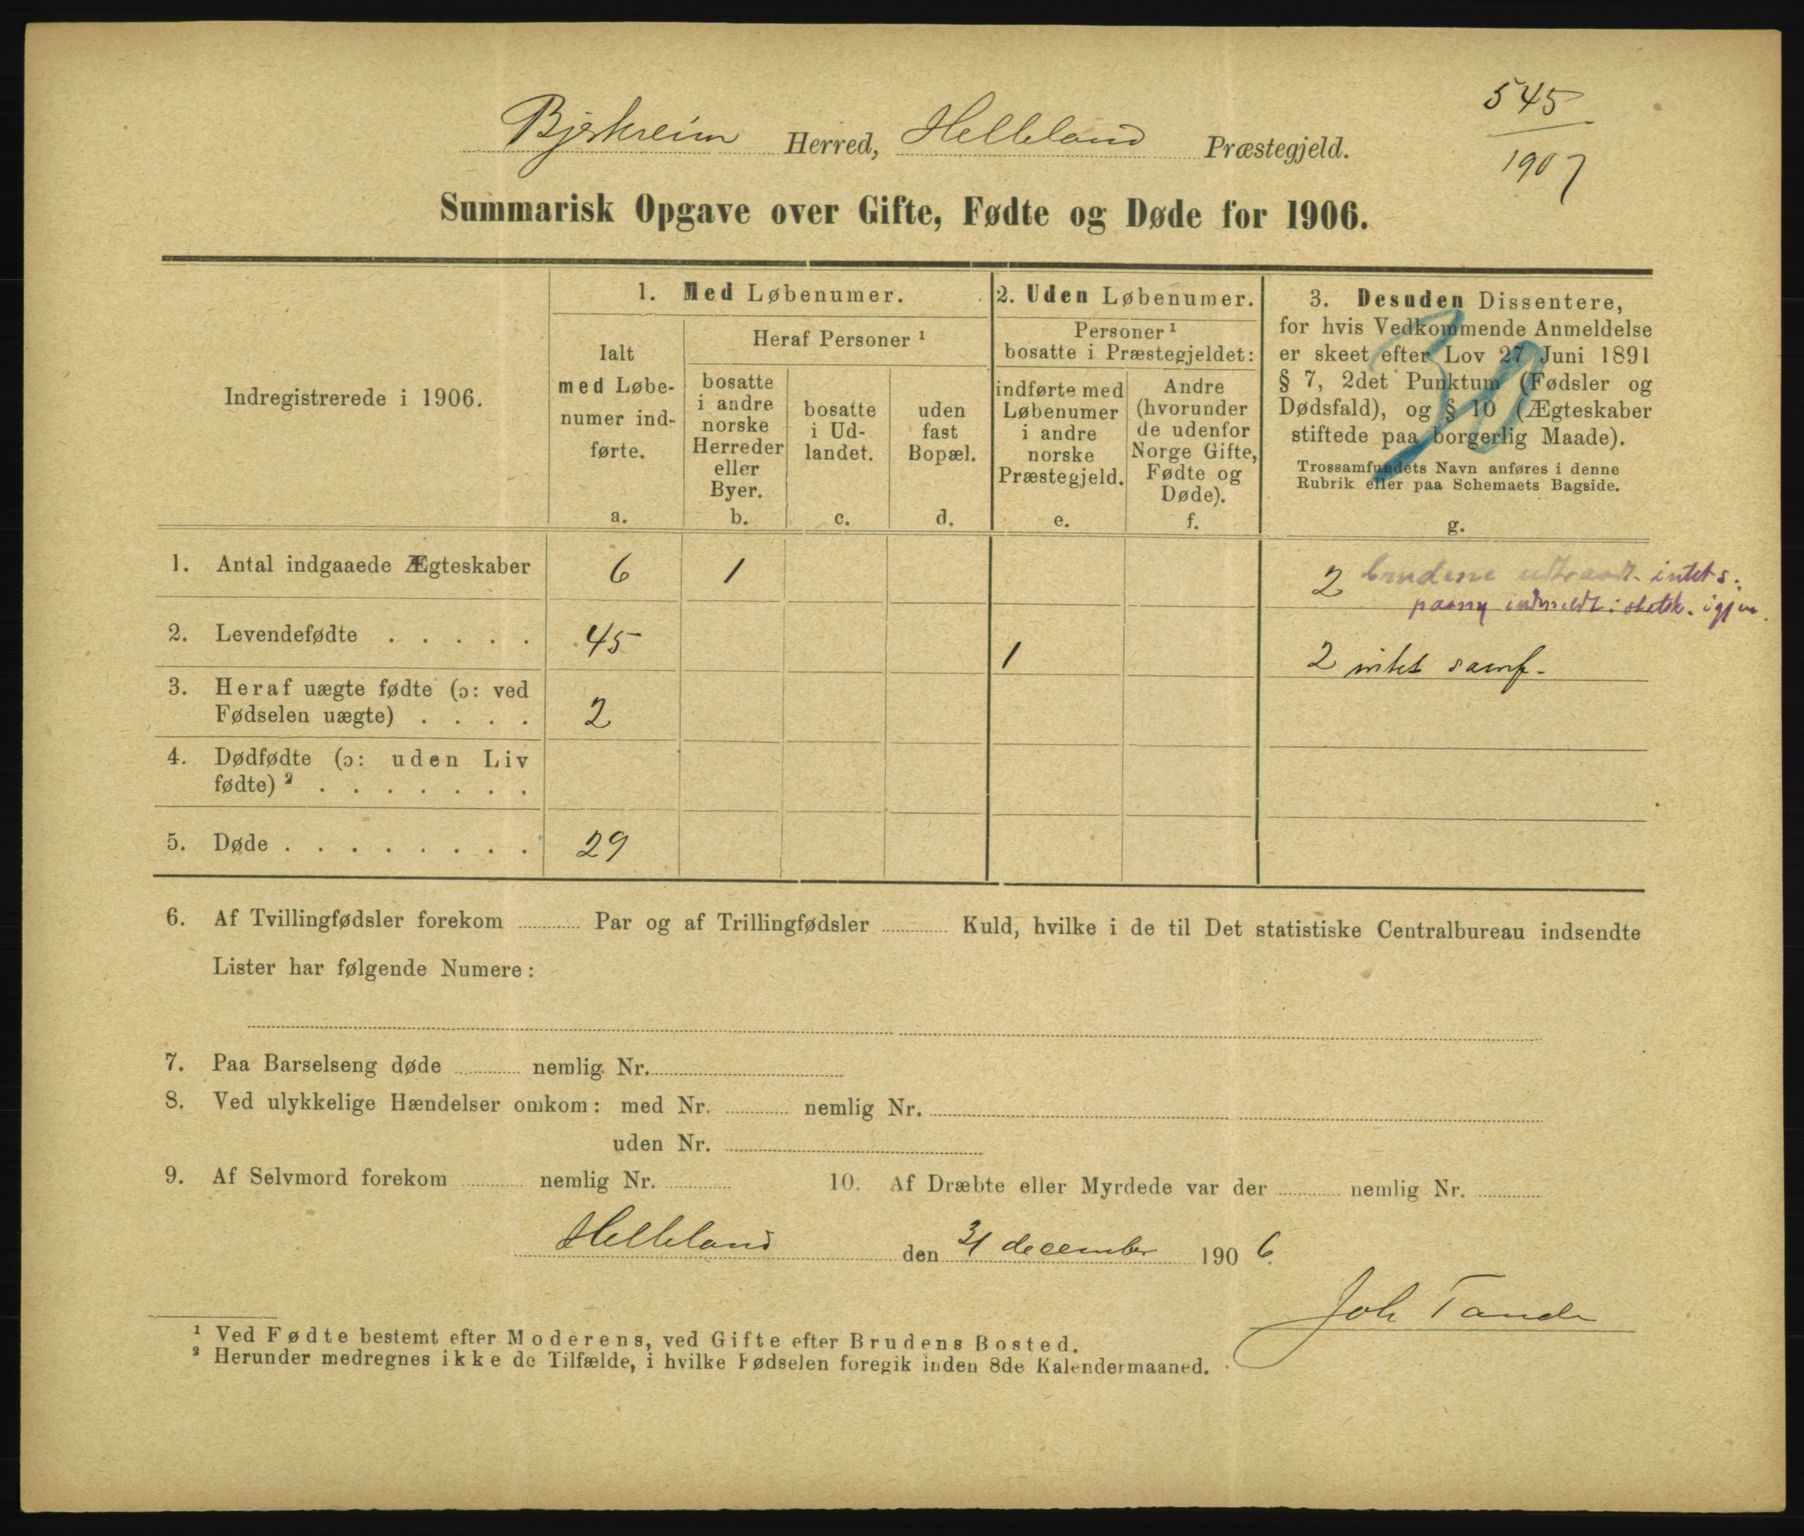 545
1907
Bjerkreim Herred, Helleland Præstegjeld.
Summarisk Opgave over Gifte, Fødte og Døde for 1906.
Indregistrerede i 1906.
1. Med Løbenumer.
Ialt
med Løbe-
numer ind-
førte.
a.
Heraf Personer ¹
bosatte
i andre
norske
Herreder
eller
Byer.
b.
bosatte
i Ud-
landet.
c.
uden
fast
Bopæl.
d.
2. Uden Løbenumer.
Personer ¹
bosatte i Præstegjeldet:
indførte med
Løbenumer
i andre
norske
Præstegjeld.
e.
Andre
(hvorunder
de udenfor
Norge Gifte,
Fødte og
Døde).
f.
3. Desuden Dissentere,
for hvis Vedkommende Anmeldelse
er skeet efter Lov 27 Juni 1891
§ 7, 2det Punktum (Fødsler og
Dødsfald), og § 10 (Ægteskaber
stiftede paa borgerlig Maade).
Trossamfundets Navn anføres i denne
Rubrik eller paa Schemaets Bagside.
g.
1. Antal indgaaede Ægteskaber 6 1 2 brudene udtraadt. intet s.
indmeldt i statsk. igjen.
2. Levendefødte . . . . . 45 1 2 intet samf.
3. Heraf uægte fødte (ɔ: ved
Fødselen uægte) . . . . 2
4. Dødfødte (ɔ: uden Liv
fødte) ² . . . . . . .
5. Døde . . . . . . . . 29
6. Af Tvillingfødsler forekom ............ Par og af Trillingfødsler ............ Kuld, hvilke i de til Det statistiske Centralbureau indsendte
Lister har følgende Numere:
7. Paa Barselseng døde ............ nemlig Nr.
8. Ved ulykkelige Hændelser omkom: med Nr. ............ nemlig Nr.
uden Nr.
9. Af Selvmord forekom ............ nemlig Nr. ............ 10. Af Dræbte eller Myrdede var der ............ nemlig Nr. ............
Helleland den 31 december 1906.
Joh Tande
¹ Ved Fødte bestemt efter Moderens, ved Gifte efter Brudens Bosted.
² Herunder medregnes ikke de Tilfælde, i hvilke Fødselen foregik inden 8de Kalendermaaned.